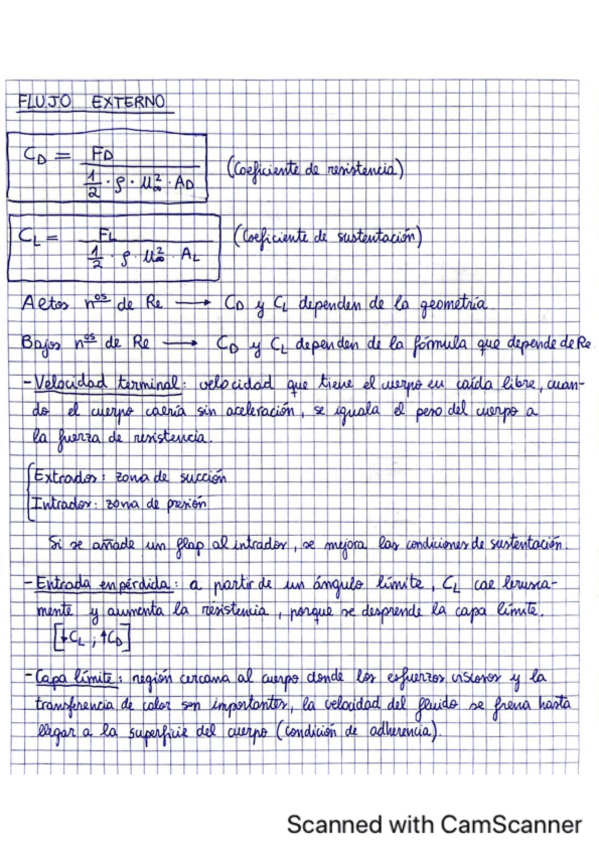 FLUJO EXTERNO
C_D = F_D / (1/2 · ρ · u∞² · A_D) (Coeficiente de resistencia)
C_L = F_L / (1/2 · ρ · u∞² · A_L) (Coeficiente de sustentación)
Altos nos de Re → C_D y C_L dependen de la geometría
Bajos nos de Re → C_D y C_L dependen de la fórmula que depende de Re
- Velocidad terminal: velocidad que tiene el cuerpo en caída libre, cuan-
do el cuerpo caería sin aceleración, se iguala el peso del cuerpo a
la fuerza de resistencia.
Extrados: zona de succión
Intrados: zona de presión
Si se añade un flap al intrados, se mejora las condiciones de sustentación.
- Entrada en pérdida: a partir de un ángulo límite, C_L cae brusca-
mente y aumenta la resistencia, porque se desprende la capa límite.
[↓C_L ; ↑C_D]
- Capa límite: región cercana al cuerpo donde los esfuerzos viscosos y la
transferencia de calor son importantes, la velocidad del fluido se frena hasta
llegar a la superficie del cuerpo (condición de adherencia).
Scanned with CamScanner